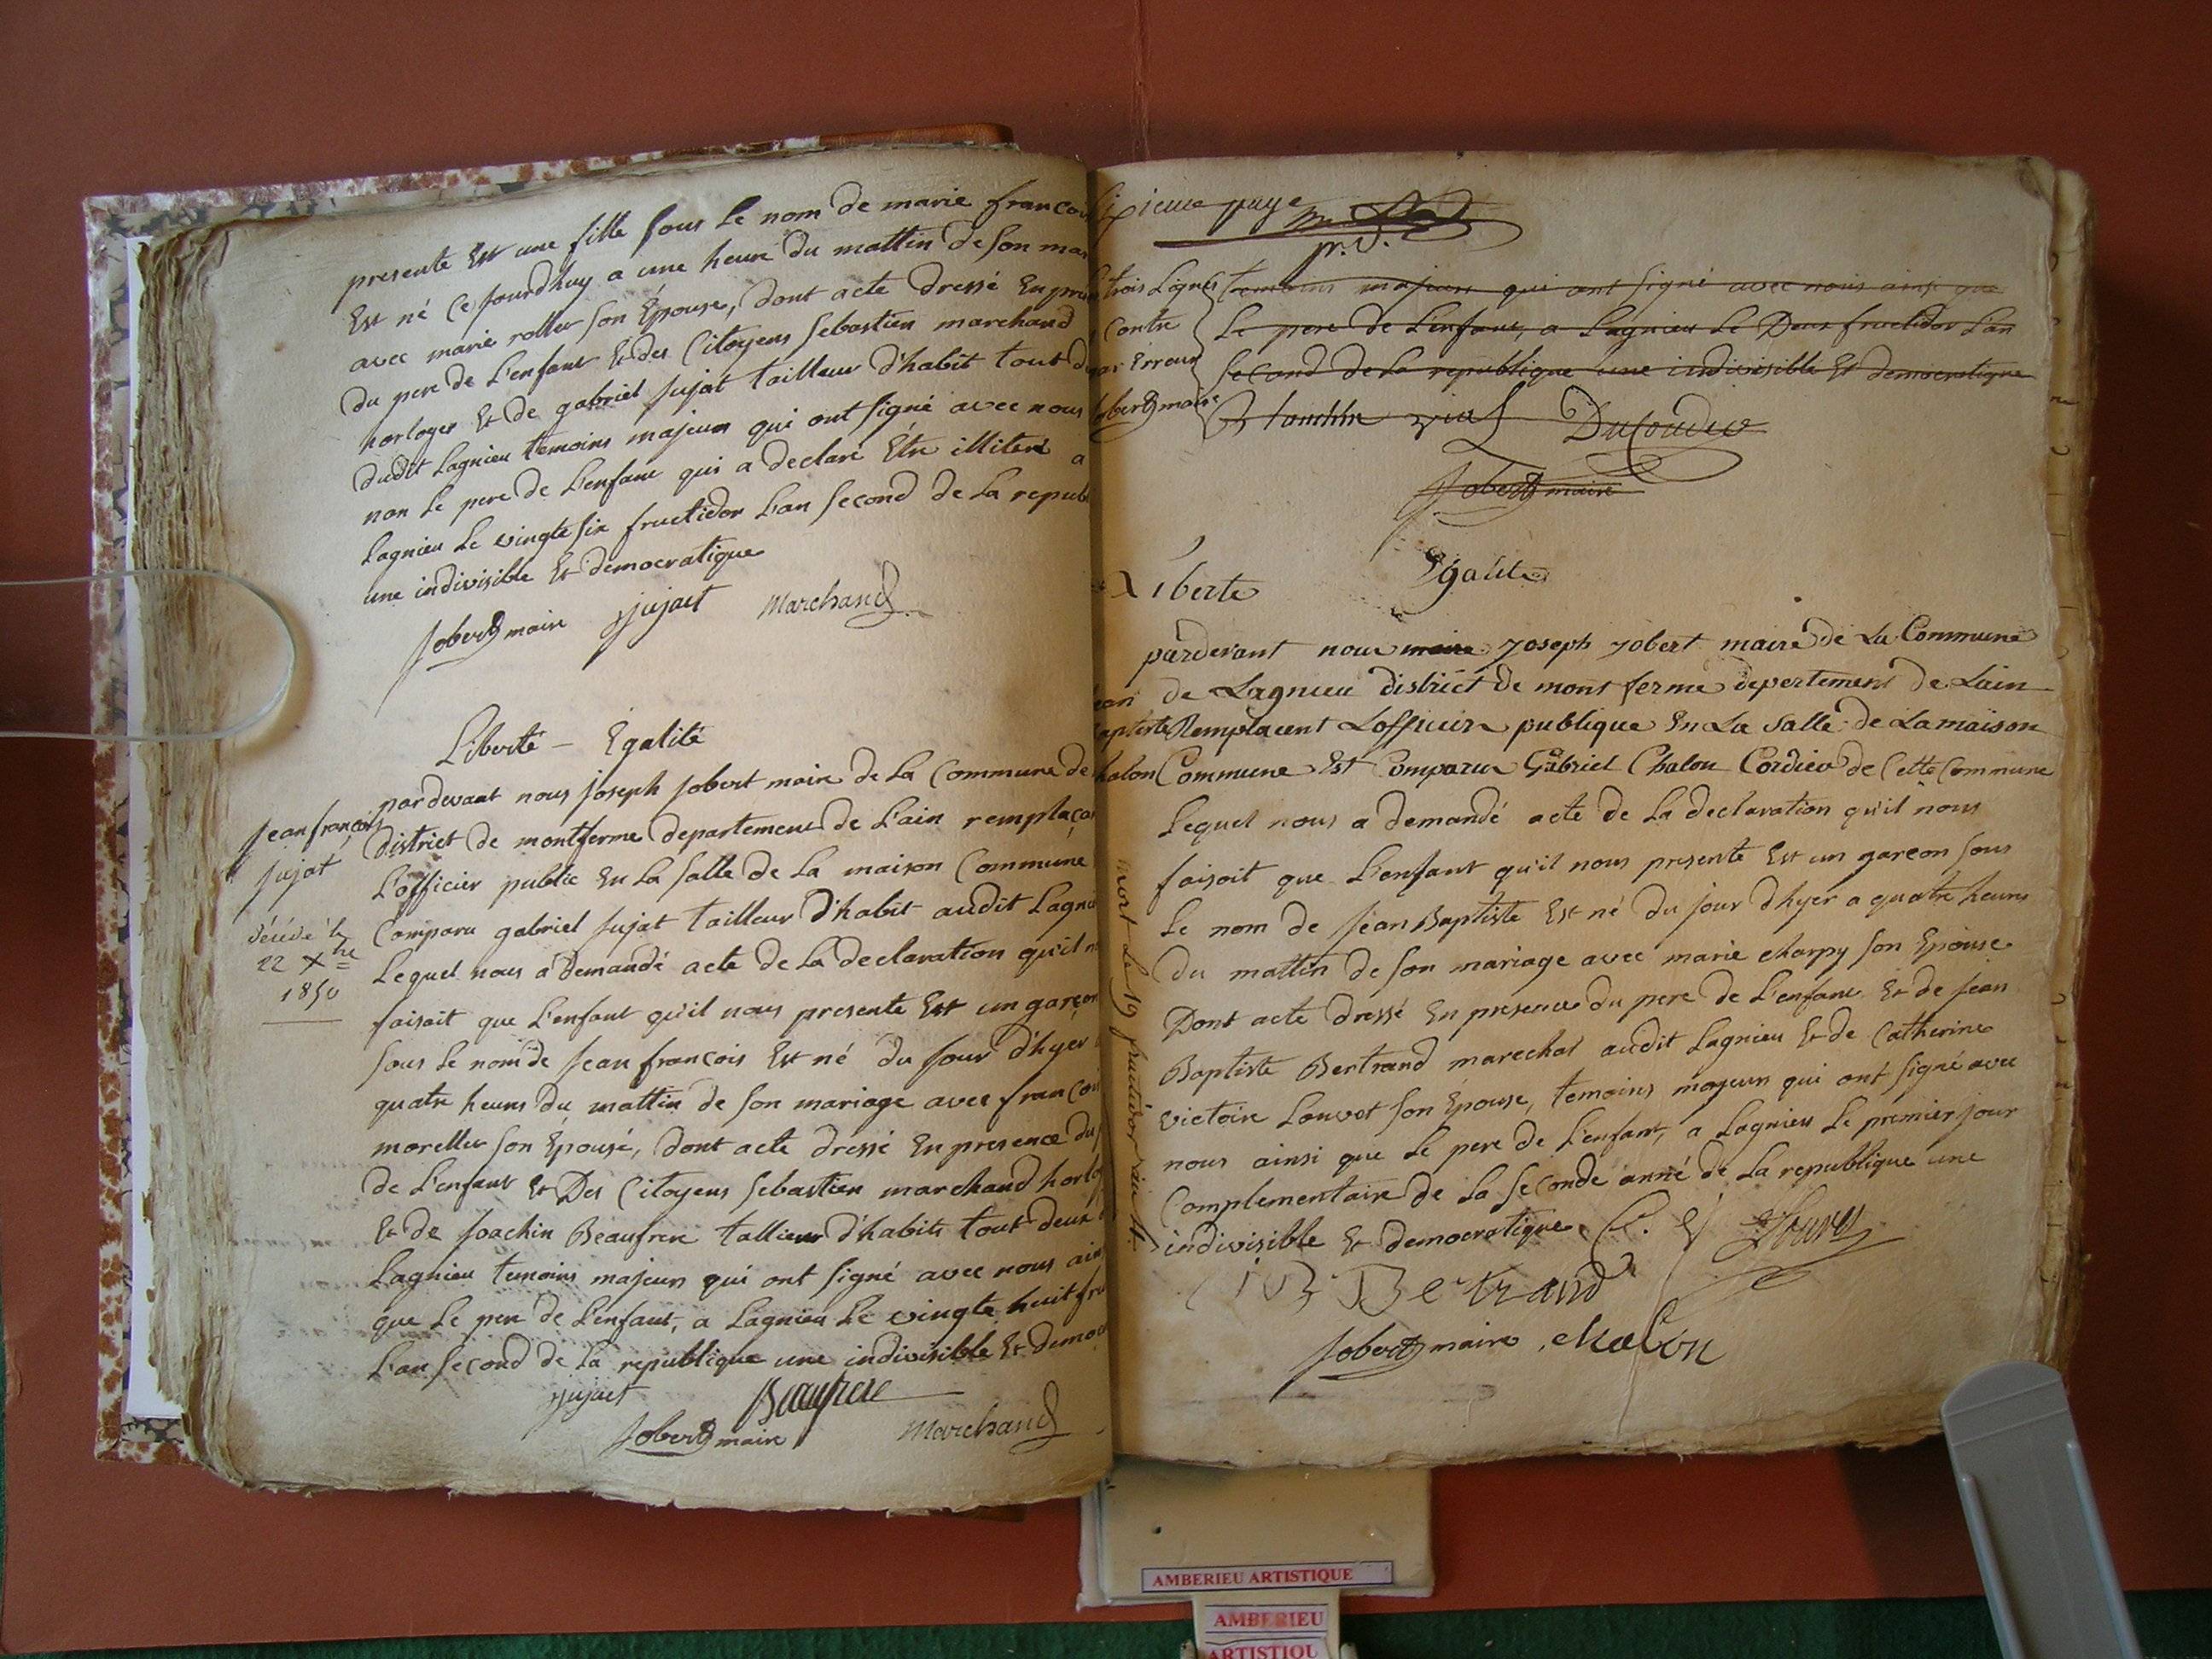 presente Est une fille sous le nom de marie françoi
Est né Ce jourdhuy a une heure du mattin de son mar
avec marie rollet son Épouse, dont acte dressé En pré
du pere de L'enfant Et des Citoyens sebastien marchand
horloger Et de gabriel jujat tailleur d'habit tout d
dudit Lagnieu temoins majeurs qui ont signé avec nous
non le pere de L'enfant qui a declaré Étre illiteré a
Lagnieu le vingte six fructidor L'an second de La republ
une indivisible Et democratique
Jobert maire jujact Marchand
Liberté - Egalité
pardevant nous joseph jobert maire de La Commune de
district de montferme departement de L'ain remplaça
L'officier public En La salle de La maison Commune
Comparu gabriel jujat tailleur d'habit audit Lagni
Lequel nous a demandé acte de La declaration qu'il n
faisoit que L'enfant qu'il nous presente Est un garçon
sous le nom de jean françois Est né du jour d'hyer
quatre heures du mattin de son mariage avec françoi
morellet son Épouse, dont acte dressé En presence du
de L'enfant Et Des Citoyens sebastien marchand horlo
Et de joachin Beaufrere tallieur d'habits tout deux
Lagnieu temoins majeurs qui ont signé avec nous ain
que le pere de L'enfant, a Lagnieu le vingte huit fru
L'an second de La republique une indivisible Et democ
jujact Beaufrere
Jobert maire Marchand
jean françois
jujat
décédé le
22 Xbre
1850
ixieme page
trois Lignes
Contre
par Erreur
Jobert maire
temoins majeurs qui ont signé avec nous ainsi que
le pere de L'enfant, a Lagnieu le Deux fructidor L'an
second de La republique une indivisible Et democratique
vial Ducouder
Jobert maire
Liberte Egalite
pardevant nous maire joseph jobert maire de La Commune
de Lagnieu district de mont ferme depertement de Lain
Remplacent Lofficier publique En La salle de La maison
Commune Est Comparu Gabriel Chalon Cordier de Cette Commune
Lequel nous a demandé acte de La declaration qu'il nous
faisoit que L'enfant qu'il nous presente Est un garcon sous
le nom de jean Baptiste Est né du jour dhyer a quatre heures
du mattin de son mariage avec marie charpy son Epouse
Dont acte dressé En presence du pere de L'enfant Et de jean
Baptiste Bertrand marechal audit Lagnieu Et de Catherine
victoire Louvot son Épouse, temoins majeurs qui ont signé avec
nous ainsi que le pere de L'enfant, a Lagnieu le premier jour
Complementaire de La seconde anné de La republique une
indivisible Et democratique
Betrand
Jobert maire chalon
ean
aptiste
halon
mort le 19 fructidor an 4.
AMBERIEU ARTISTIQUE
AMBERIEU
ARTISTIQU